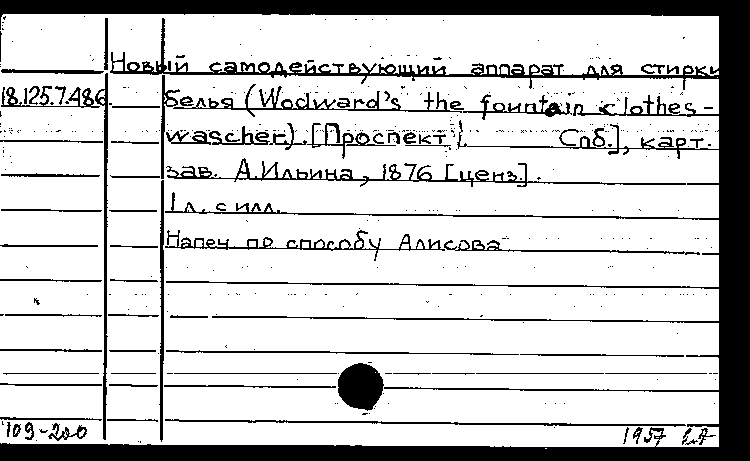 Новый самодействующий аппарат для стирки
18.125.7.486 белья (Wodward's the fountain clothes-
wascher). [Проспект]. Спб.], карт.
зав. А.Ильина, 1876 [ценз].
1 л. с илл.
Напеч по способу Алисова
109-200 1957